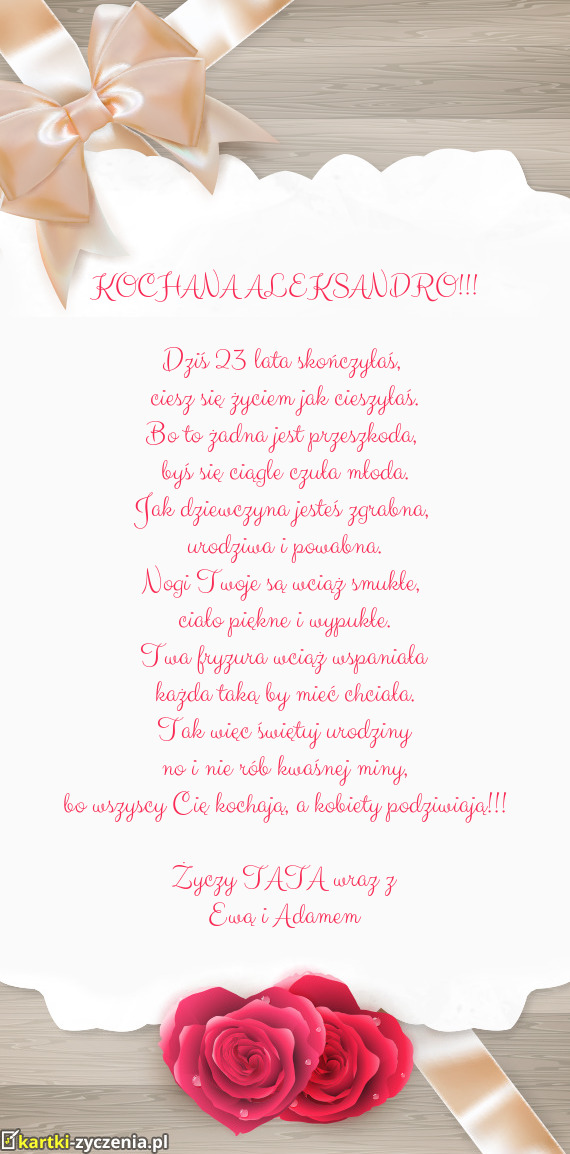 KOCHANA ALEKSANDRO!!!
Dziś 23 lata skończyłaś,
ciesz się życiem jak cieszyłaś.
Bo to żadna jest przeszkoda,
byś się ciągle czuła młoda.
Jak dziewczyna jesteś zgrabna,
urodziwa i powabna.
Nogi Twoje są wciąż smukłe,
ciało piękne i wypukłe.
Twa fryzura wciąż wspaniała
każda taką by mieć chciała.
Tak więc świętuj urodziny
no i nie rób kwaśnej miny,
bo wszyscy Cię kochają, a kobiety podziwiają!!!
Życzy TATA wraz z
Ewą i Adamem
kartki-zyczenia.pl